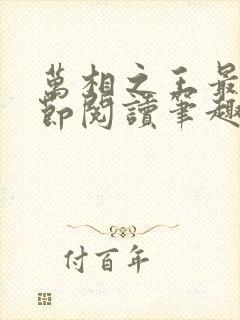 萬相之王最
節閱讀筆趣
付百年